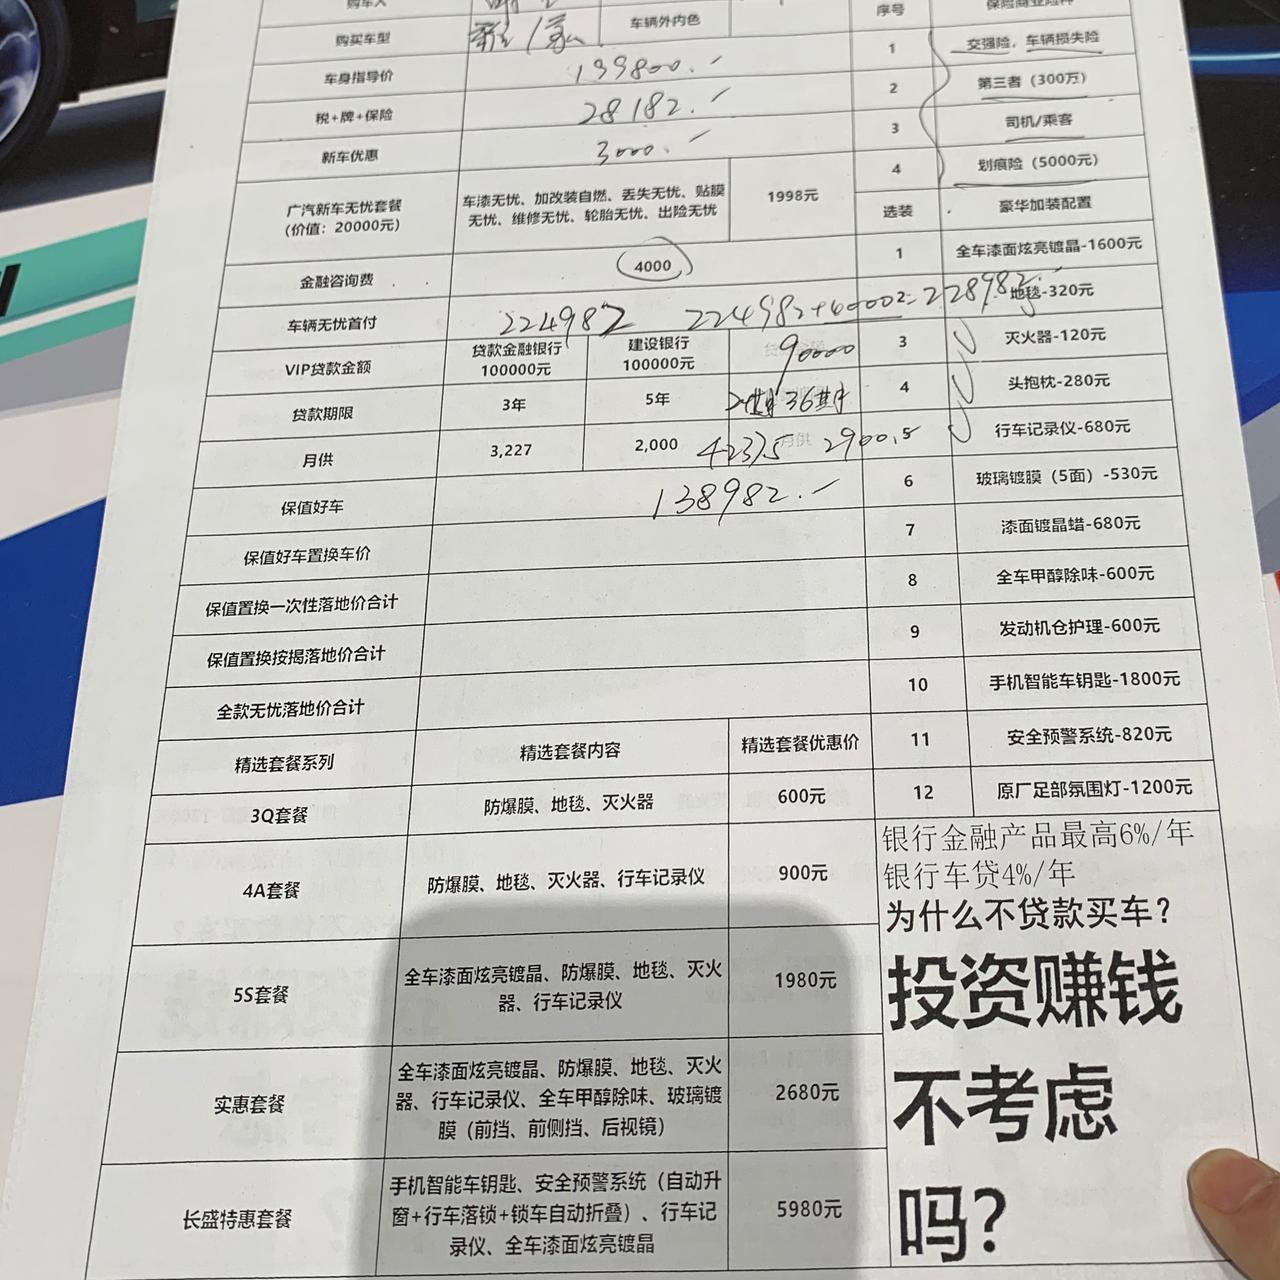 购车人
序号
保险商业险种
购买车型
车辆外内色
1
交强险，车辆损失险
车身指导价
199800.-
2
第三者（300万）
税+牌+保险
28182.-
3
司机/乘客
新车优惠
3000.-
4
划痕险（5000元）
广汽新车无忧套餐
（价值：20000元）
车漆无忧、加改装自燃、丢失无忧、贴膜
无忧、维修无忧、轮胎无忧、出险无忧
1998元
选装
豪华加装配置
金融咨询费
4000
1
全车漆面炫亮镀晶-1600元
车辆无忧首付
224982
224982+4000=228982.-
2
地毯-320元
VIP贷款金额
贷款金融银行
100000元
建设银行
100000元
90000
3
灭火器-120元
贷款期限
3年
5年
36期
4
头抱枕-280元
月供
3,227
2,000
月供
2900.5
行车记录仪-680元
保值好车
138982.-
6
玻璃镀膜（5面）-530元
保值好车置换车价
7
漆面镀晶蜡-680元
保值置换一次性落地价合计
8
全车甲醇除味-600元
保值置换按揭落地价合计
9
发动机仓护理-600元
全款无忧落地价合计
10
手机智能车钥匙-1800元
精选套餐系列
精选套餐内容
精选套餐优惠价
11
安全预警系统-820元
3Q套餐
防爆膜、地毯、灭火器
600元
12
原厂足部氛围灯-1200元
4A套餐
防爆膜、地毯、灭火器、行车记录仪
900元
银行金融产品最高6%/年
银行车贷4%/年
为什么不贷款买车？
投资赚钱
不考虑
吗？
5S套餐
全车漆面炫亮镀晶、防爆膜、地毯、灭火
器、行车记录仪
1980元
实惠套餐
全车漆面炫亮镀晶、防爆膜、地毯、灭火
器、行车记录仪、全车甲醇除味、玻璃镀
膜（前挡、前侧挡、后视镜）
2680元
长盛特惠套餐
手机智能车钥匙、安全预警系统（自动升
窗+行车落锁+锁车自动折叠）、行车记
录仪、全车漆面炫亮镀晶
5980元